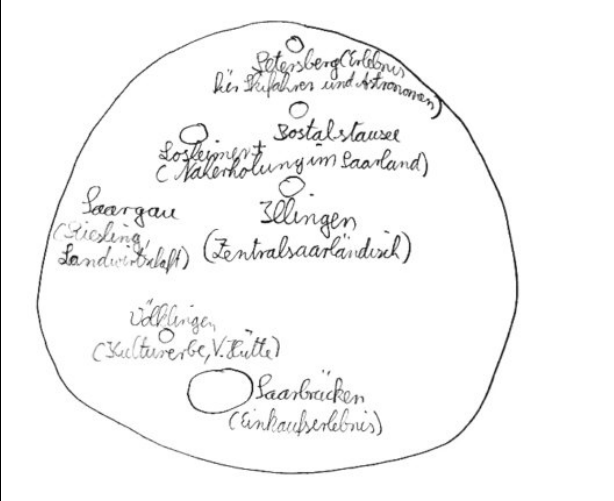 Petersberg (Erlebnis
für Skifahrer und Astronomen)
Bostalstausee
Losheim
(Naherholung im Saarland)
Saargau
(Riesling,
Landwirtschaft)
Illingen
(Zentralsaarländisch)
Völklingen
(Kulturerbe, V. Hütte)
Saarbrücken
(Einkaufserlebnis)